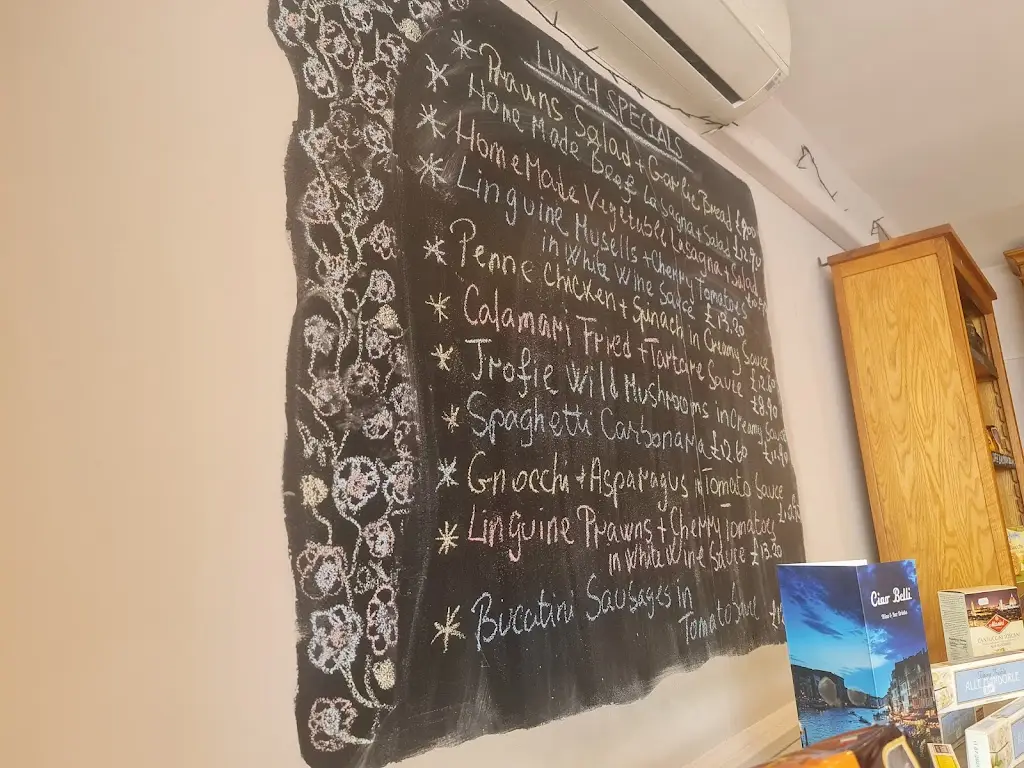 LUNCH SPECIALS
Prawns Salad + Garlic Bread
Home Made Beef Lasagna + Salad £12.90
Home Made Vegetable Lasagna + Salad
Linguine Musells + Cherry Tomatoes
in White Wine Sauce £13.20
Penne Chicken + Spinach in Creamy Sauce
£12.60
Calamari Fried + Tartare Sauce £8.90
Trofie Wild Mushrooms in Creamy Sauce
Spaghetti Carbonara £12.60
Gnocchi + Asparagus in Tomato Sauce
Linguine Prawns + Cherry Tomatoes
in White Wine Sauce £13.20
Bucatini Sausages in
Tomato
Ciao Belli
ALLE MANDORLE